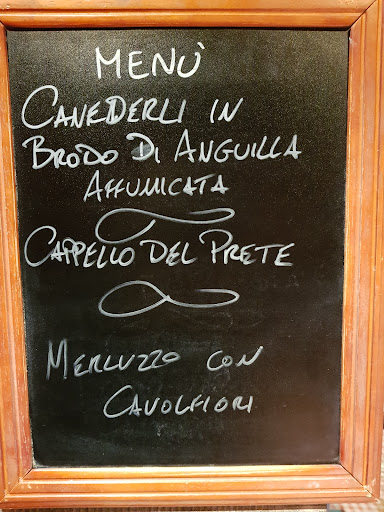 MENÙ
CANEDERLI IN
BRODO DI ANGUILLA
AFFUMICATA
CAPPELLO DEL PRETE
MERLUZZO CON
CAVOLFIORI